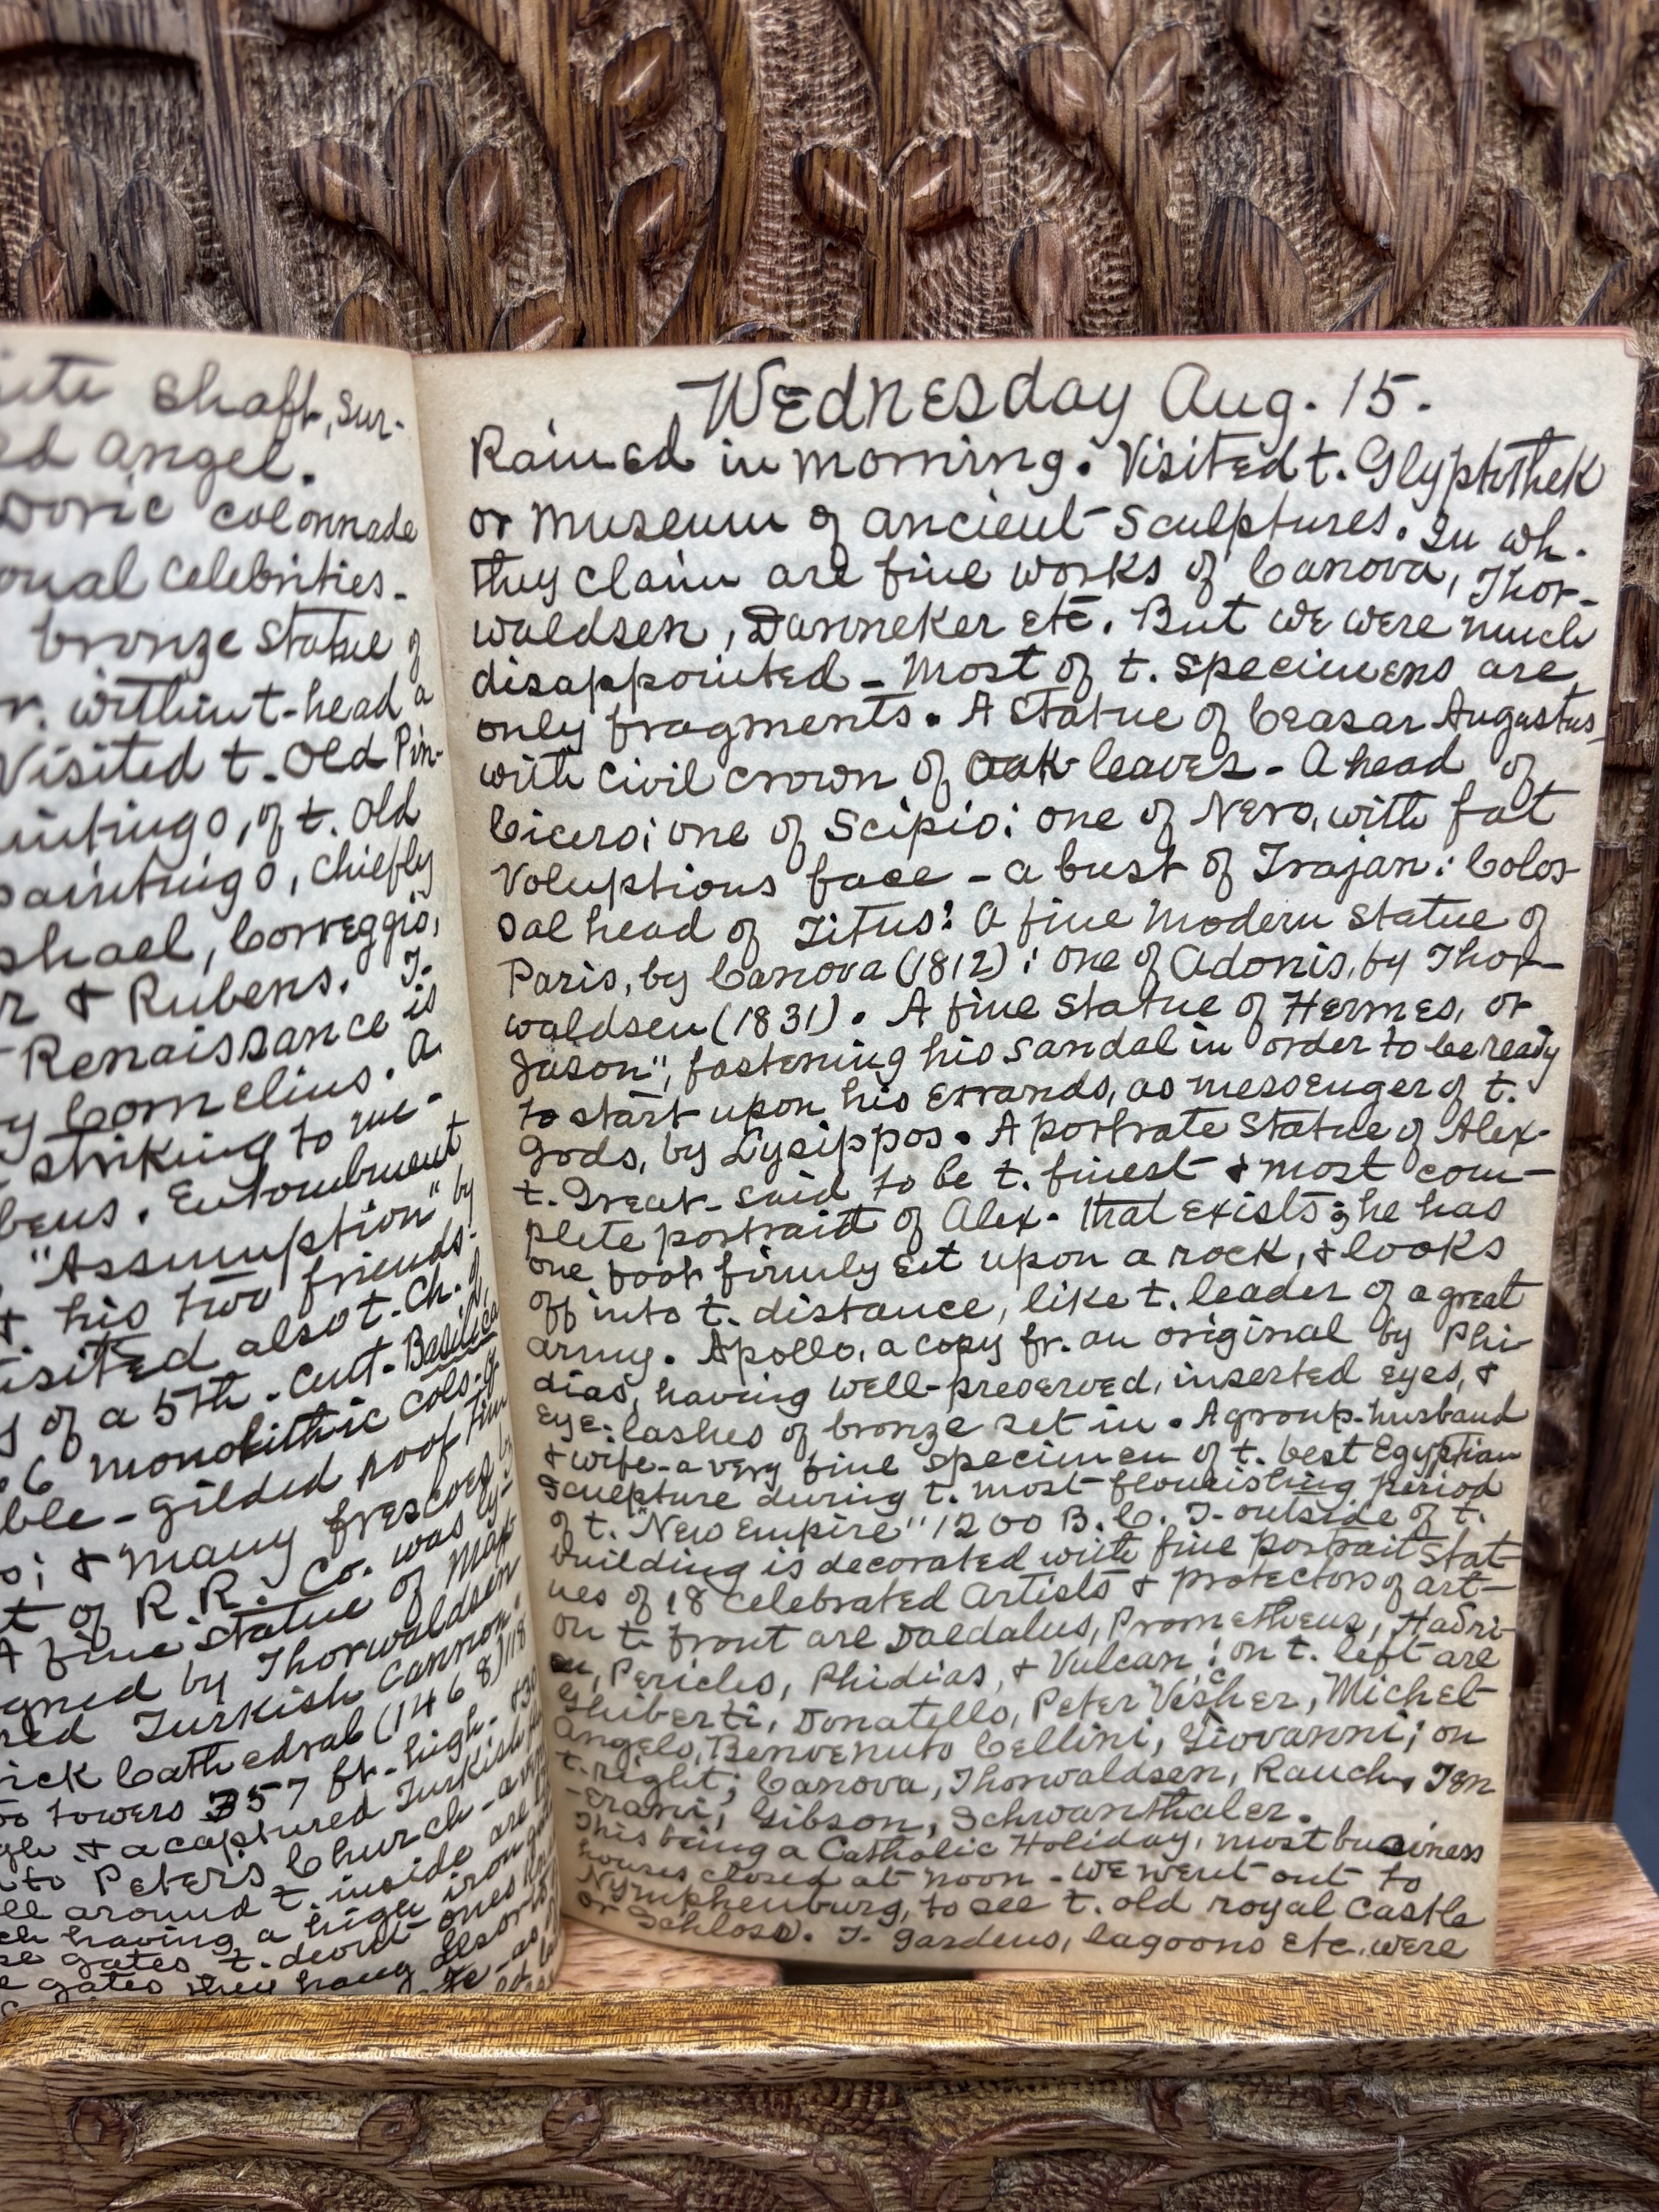 shaft, sur-
ed angel.
Doric colonnade
onal celebrities.
bronze statue of
within t-head a
Visited t. Old Pin-
of t. old
paintings, chiefly
phael, Correggio,
r & Rubens. T-
Renaissance is
y Cornelius. a
striking to me-
bens. Entombment
"Assumption" by
t. his two friends.
isited also t. Ch. of
s of a 5th-Cent-Basilica
6 monolithic cols. of
ble-gilded roof tim
s; & many frescoes by
t of R.R. Co. was
A fine statue of Max
gned by Thorwaldsen
red Turkish Cannon.
rick Cathedral (1468)
oo towers 357 ft. high.
gh & a captured Turkish
to Peter's Church-a
ll around t. inside are
ch having a high iron
se gates t. devout ones
e gates they hang
Wednesday Aug. 15.
Rained in morning. Visited t. Glyptothek
or museum of ancient sculptures. In wh.
they claim are fine works of Canova, Thor-
waldsen, Danneker etc. But we were much
disappointed - Most of t. specimens are
only fragments. A statue of Ceasar Augustus
with civil crown of oak leaves - A head of
Cicero; one of Scipio; one of Nero, with fat
Voluptious face - a bust of Trajan: Colos-
sal head of Titus: A fine modern statue of
Paris, by Canova (1812); one of Adonis, by Thor-
waldsen (1831). A fine statue of Hermes, or
Jason", fastening his sandal in order to be ready
to start upon his errands, as messenger of t.
gods, by Lysippos. A portrate statue of Alex-
t. Great - said to be t. finest & most com-
plete portrait of Alex. that exists; he has
one foot firmly set upon a rock, & looks
off into t. distance, like t. leader of a great
army. Apollo, a copy fr. an original by Phi-
dias, having well-preserved, inserted eyes, &
eye-lashes of bronze set in. A group-husband
& wife-a very fine specimen of t. best Egyptian
sculpture during t. most flourishing period
of t. "New Empire" 1200 B.C. T- outside of t.
building is decorated with fine portrait stat-
ues of 18 celebrated Artists & protectors of art-
on t- front are Daedalus, Prometheus, Hadri-
an, Pericles, Phidias, & Vulcan; on t. left are
Ghiberti, Donatello, Peter Vischer, Michel
Angelo, Benvenuto Cellini, Giovanni; on
t. right; Canova, Thorwaldsen, Rauch, Ten
-erani, Gibson, Schwanthaler.
This being a Catholic Holiday, most business
houses closed at noon - We went out to
Nymphenburg, to see t. old royal Castle
or Schloss. T- gardens, lagoons etc. were